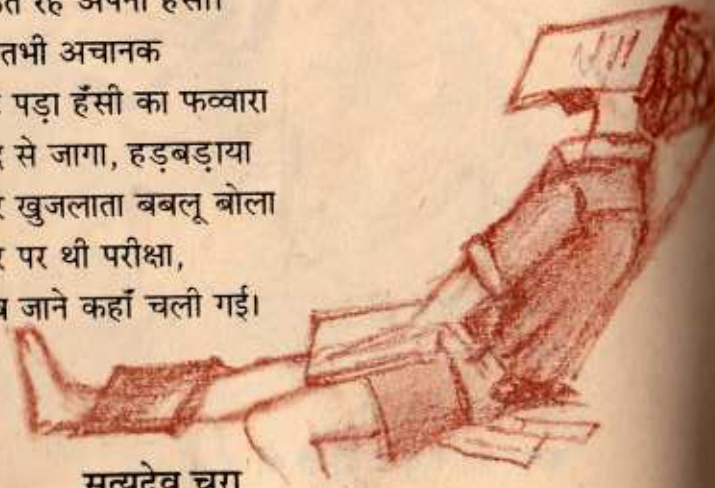 रहे अपनी हँसी।
तभी अचानक
पड़ा हँसी का फव्वारा
से जागा, हड़बड़ाया
खुजलाता बबलू बोला
पर थी परीक्षा,
जाने कहाँ चली गई।
सत्यदेव चुरा